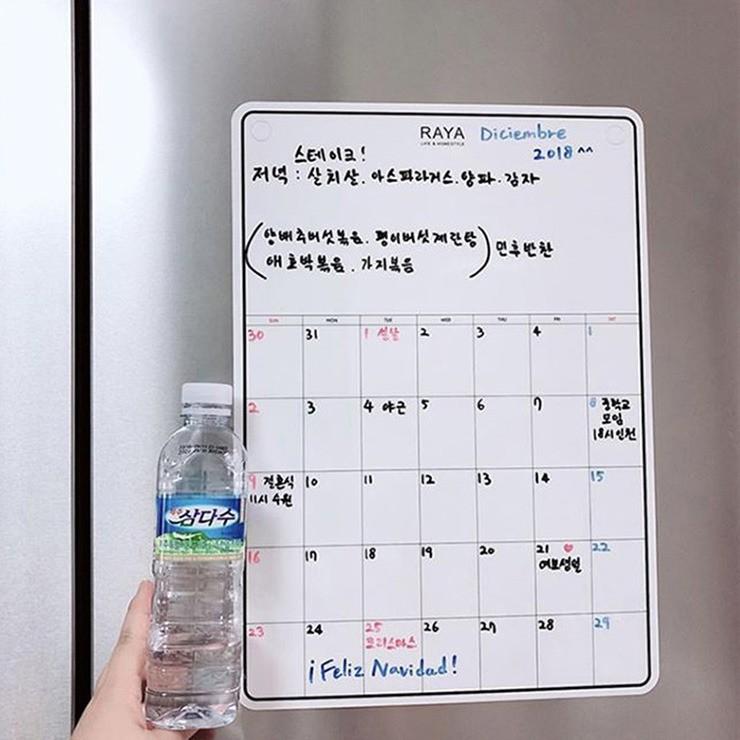 RAYA Diciembre
LIFE & HOMESTYLE
2018^^
스테이크!
저녁 : 살치살. 아스파라거스. 양파. 감자
(양배추버섯볶음. 팽이버섯계란탕
애호박볶음. 가지볶음) 민후반찬
SUN MON TUE WED THU FRI SAT
30 31 1 설날 2 3 4 1
2 3 4 야근 5 6 7 8 중학교
모임
18시 인천
9 결혼식 10 11 12 13 14 15
11시 수원
16 17 18 19 20 21 ♥ 22
여보생일
23 24 25 26 27 28 29
크리스마스
¡Feliz Navidad!
제주
삼다수